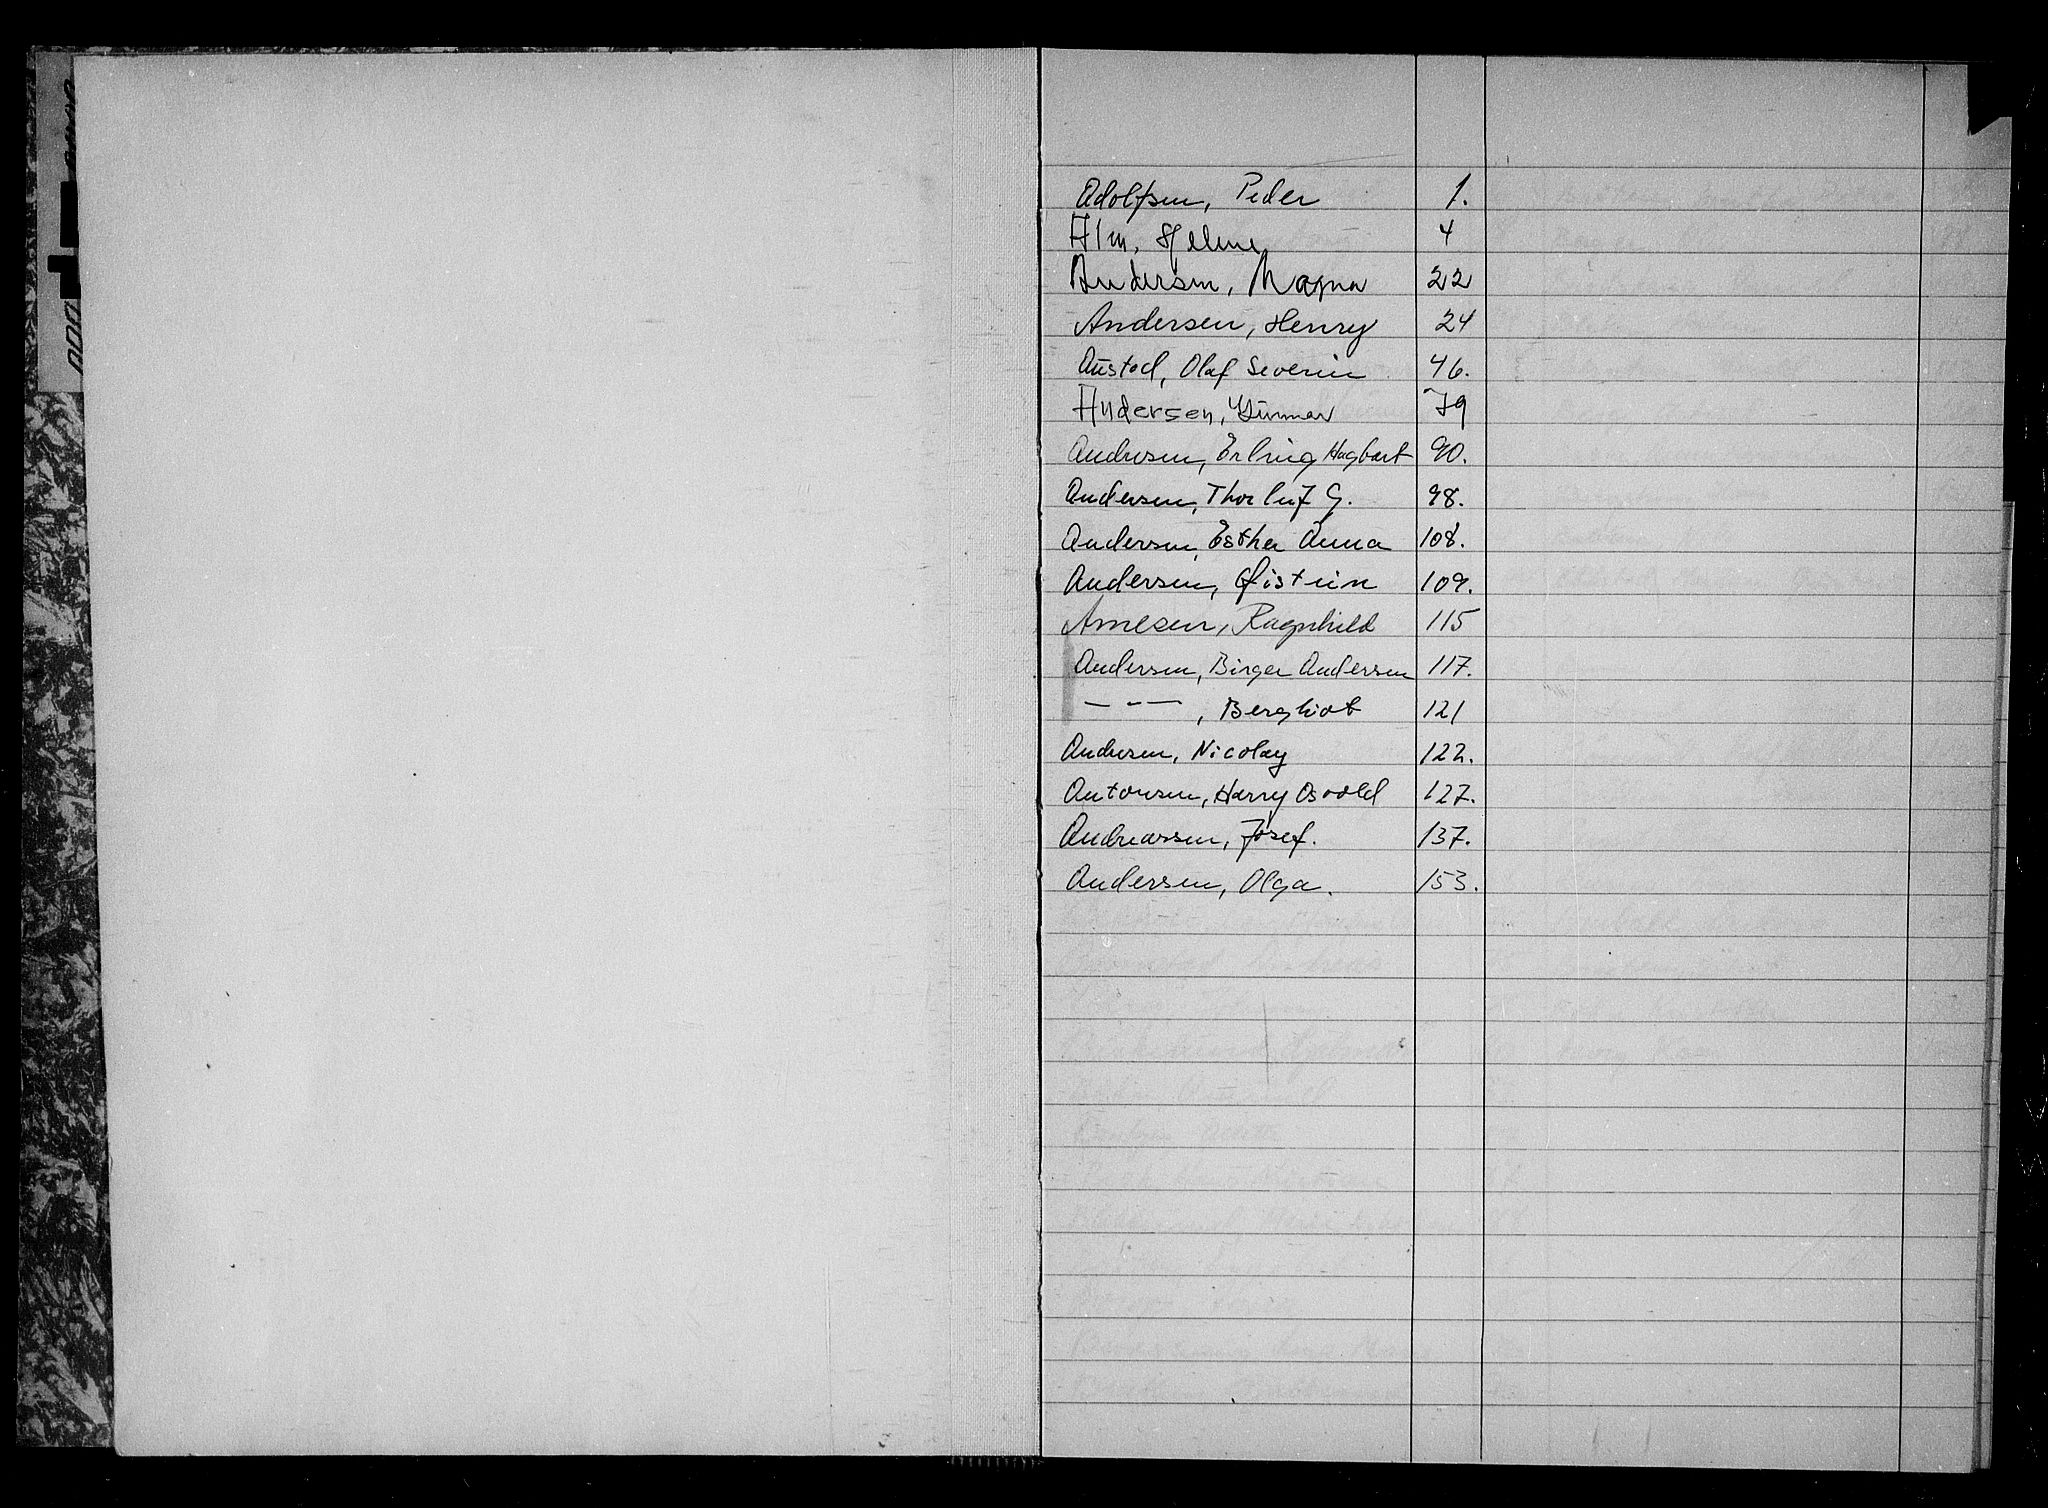 Adolfsen, Peder 1.
Alm, 4
Andersen, Magna 22
Andersen, Henry 24
Austad, Olaf Severin 46.
Andersen, Gunnar 79
Andresen, Erling Hagbart 90.
Andersen, Thorleif G. 98.
Andersen, Esther Anna 108.
Andersen, Øistein 109.
Arnesen, Ragnhild 115
Andersen, Birger Anderssen 117.
— - —, Bergliot 121
Andresen, Nicolay 122.
Antonsen, Harry Osvald 127.
Andreassen, Josef. 137.
Anderssen, Olga. 153.